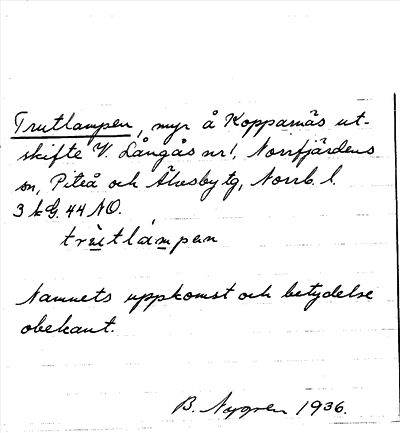 Trutlampen, myr å Kopparnäs ut-
skifte V. Långås nr 1, Norrfjärdens
sn, Piteå och Älvsby tg, Norrb. l.
3 k G. 44 NO.
trùtlámpan
Namnets uppkomst och betydelse
obekant.
B. Nygren 1936.